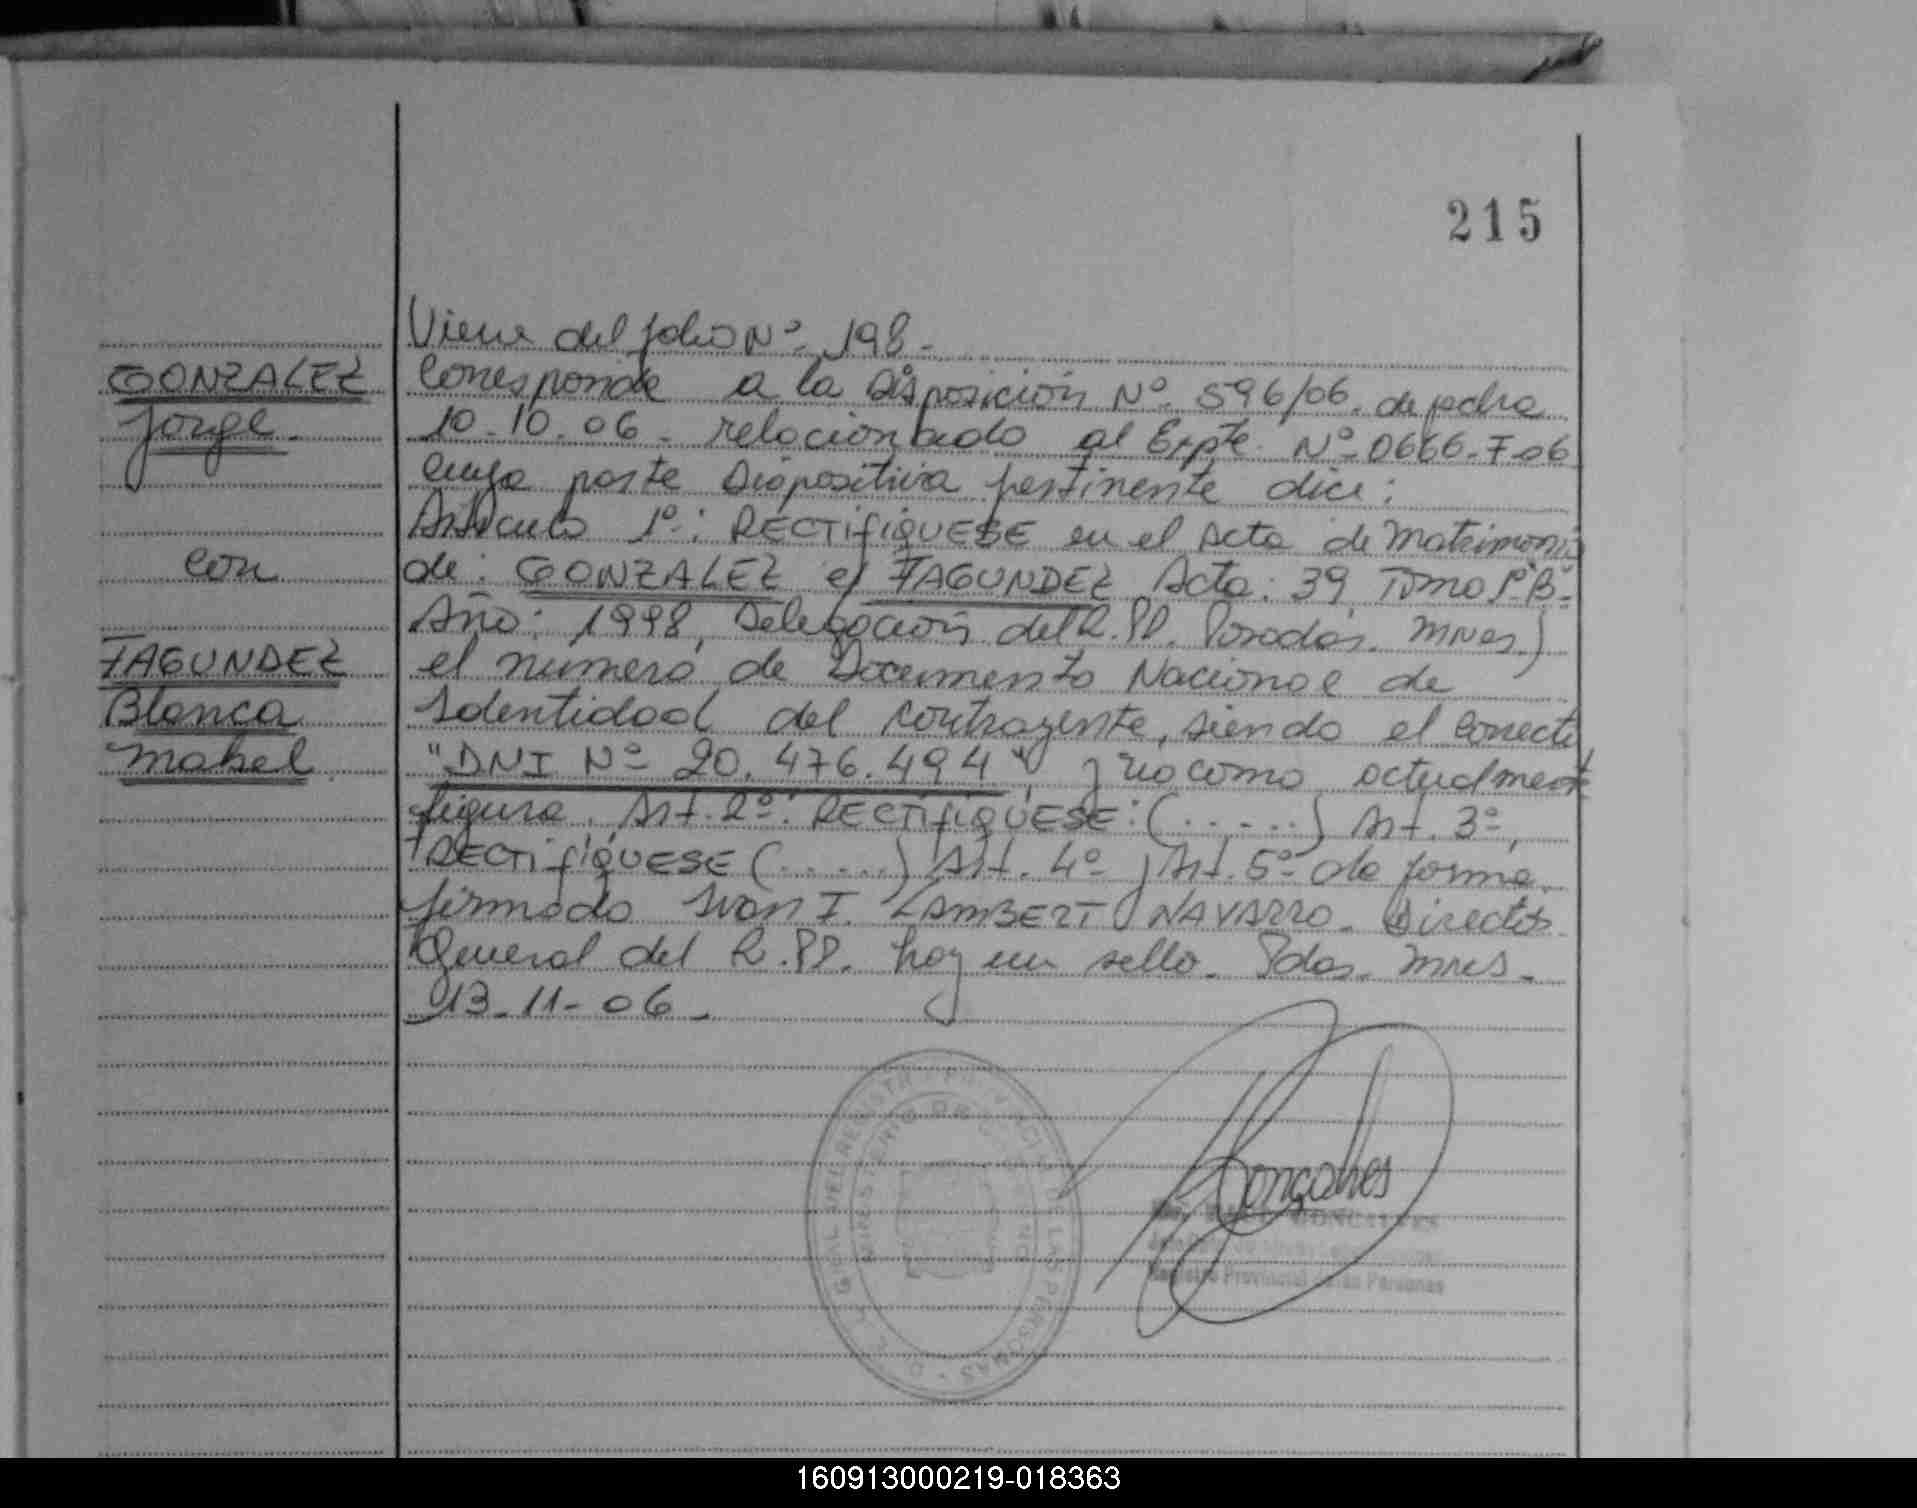 215
Viene del folio Nº 198.-
GONZALEZ
Corresponde a la Disposición Nº 596/06. de fecha
Jorge.
10-10-06- relacionado al Expte. Nº 0666-7-06
cuya parte Dispositiva pertinente dice:
Artículo 1º: RECTIFIQUESE en el Acta de Matrimonio
con
de: GONZALEZ c/ FAGUNDEZ Acta: 39, Tomo Iº-Bº-
Año: 1998, Delegación del R.PP. Posadas. Mnes.)
FAGUNDEZ
el numero de Documento Nacional de
Blanca
Identidad del contrayente, siendo el correcto
Mabel.
"DNI Nº 20.476.494" y no como actualmente
figura. Art. 2º: RECTIFIQUESE: (.....) Art. 3º,
RECTIFIQUESE (.....) Art. 4º y Art. 5º de forma.
firmado Ivan I. LAMBERT NAVARRO. Director
General del R.PP. hay un sello. Pdas. Mnes.
13-11-06.-
MINISTERIO DE GOBIERNO
Gonçalves
GONCALVES
Registro Provincial de las Personas
160913000219-018363